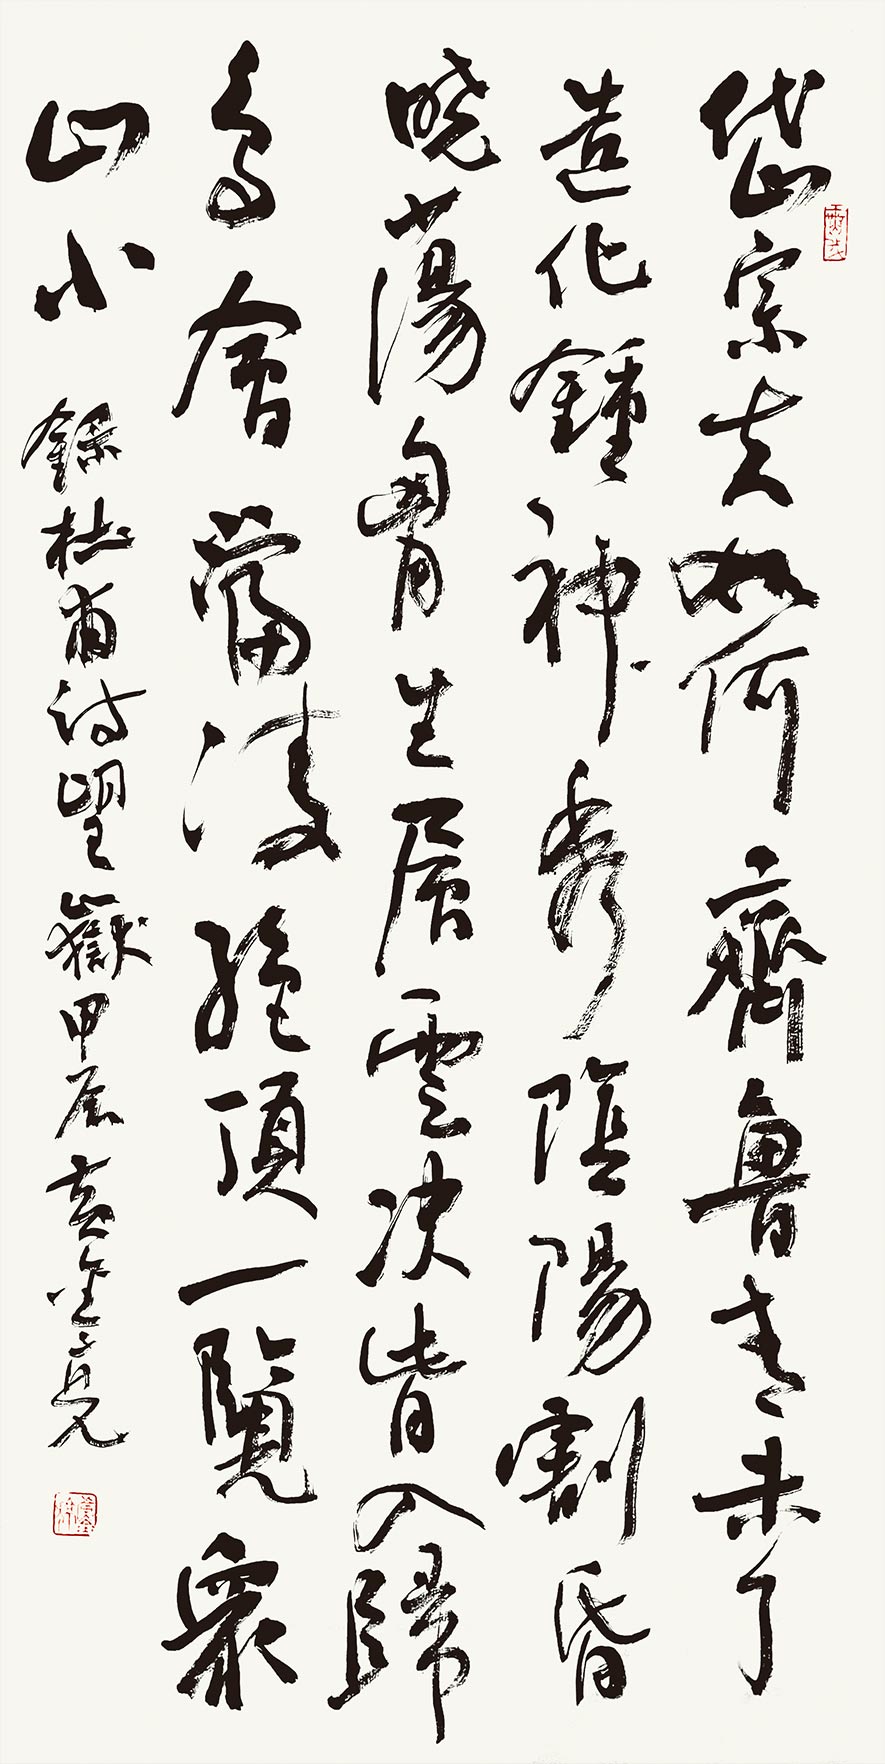 岱宗夫如何齊魯青未了
造化鍾神秀陰陽割昏
曉蕩胷生層雲決眥入歸
鳥會當凌絕頂一覽眾
山小 錄杜甫詩望嶽甲辰黃金亮